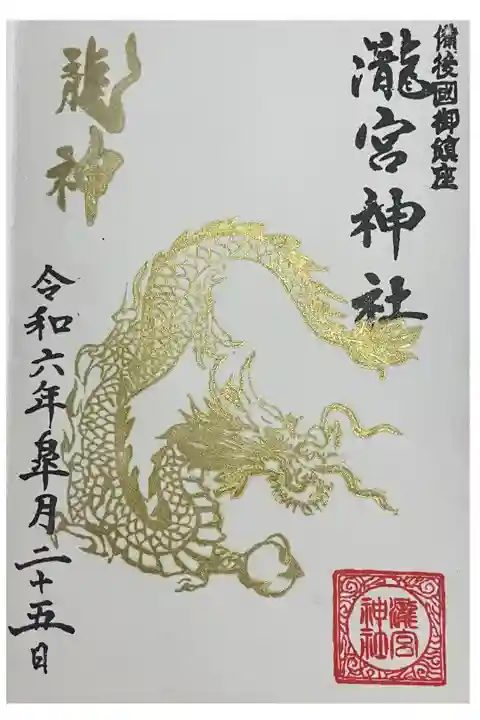 備後國御鎮座
瀧宮神社
龍神
令和六年皐月二十五日
瀧宮
神社